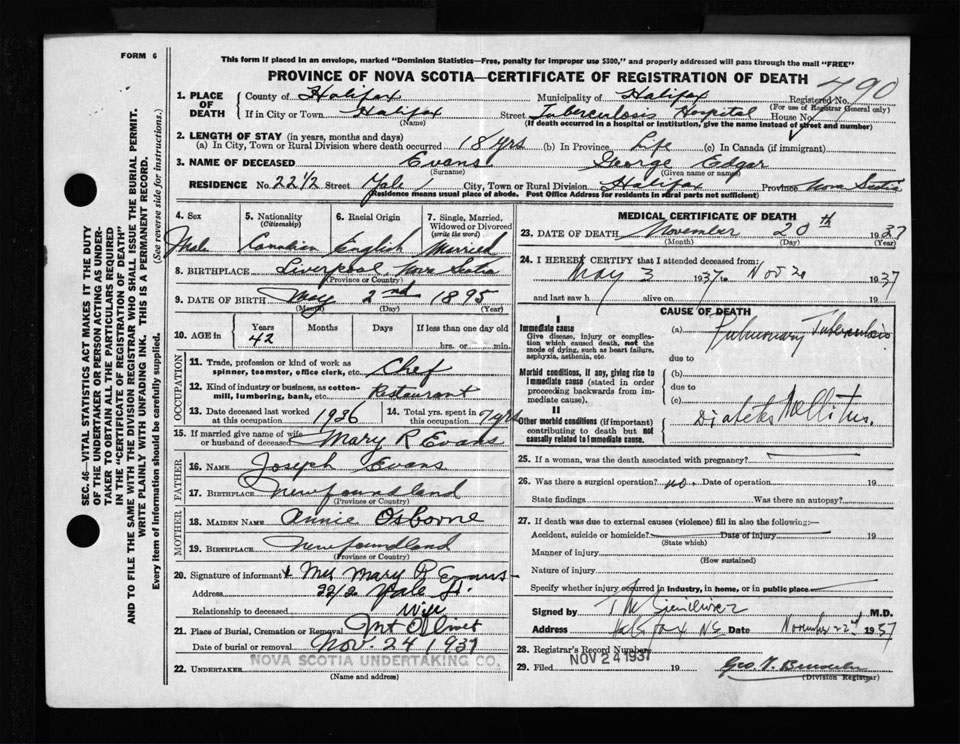 FORM 6
This form if placed in an envelope, marked "Dominion Statistics—Free, penalty for improper use $300," and properly addressed will pass through the mail "FREE"
PROVINCE OF NOVA SCOTIA—CERTIFICATE OF REGISTRATION OF DEATH
1. PLACE OF DEATH County of Halifax Municipality of Halifax Registered No. 790
(For use of Registrar General only)
If in City or Town Halifax Street Tuberculosis Hospital House No.
(Name) (If death occurred in a hospital or institution, give the name instead of street and number)
2. LENGTH OF STAY (in years, months and days)
(a) In City, Town or Rural Division where death occurred 18 yrs (b) In Province Life (c) In Canada (if immigrant)
3. NAME OF DECEASED Evans George Edgar
(Surname) (Given name or names)
RESIDENCE No. 22 1/2 Street Yale City, Town or Rural Division Halifax Province Nova Scotia
(Residence means usual place of abode. Post Office Address for residents in rural parts not sufficient)
4. Sex 5. Nationality (Citizenship) 6. Racial Origin 7. Single, Married, Widowed or Divorced (write the word)
Male Canadian English Married
8. BIRTHPLACE Liverpool, Nova Scotia
(Province or Country)
9. DATE OF BIRTH May 2nd 1895
(Month) (Day) (Year)
10. AGE in Years Months Days If less than one day old
42 hrs. or min.
OCCUPATION
11. Trade, profession or kind of work as spinner, teamster, office clerk, etc. Chef
12. Kind of industry or business, as cotton-mill, lumbering, bank, etc. Restaurant
13. Date deceased last worked at this occupation 1936 14. Total yrs. spent in 7 yrs
15. If married give name of wife or husband of deceased Mary R Evans
FATHER
16. Name Joseph Evans
17. Birthplace Newfoundland
(Province or Country)
MOTHER
18. MAIDEN NAME Annie Osborne
19. BIRTHPLACE Newfoundland
(Province or Country)
20. Signature of informant Mrs Mary R Evans
Address Yale St.
Relationship to deceased Wife
21. Place of Burial, Cremation or Removal Mt Olivet
Date of burial or removal Nov. 24 1937
22. UNDERTAKER NOVA SCOTIA UNDERTAKING CO.
(Name and address)
MEDICAL CERTIFICATE OF DEATH
23. DATE OF DEATH November 20th 1937
(Month) (Day) (Year)
24. I HEREBY CERTIFY that I attended deceased from:
May 3 1937 to Nov 20 1937
and last saw h alive on 19
CAUSE OF DEATH
I
Immediate cause
Give disease, injury or complication which caused death, not the mode of dying, such as heart failure, asphyxia, asthenia, etc.
(a) Pulmonary Tuberculosis
due to
Morbid conditions, if any, giving rise to immediate cause (stated in order proceeding backwards from immediate cause).
(b)
due to
(c)
II
Other morbid conditions (if important) contributing to death but not causally related to immediate cause.
Diabetes Mellitus.
25. If a woman, was the death associated with pregnancy?
26. Was there a surgical operation? no. Date of operation 19
State findings Was there an autopsy?
27. If death was due to external causes (violence) fill in also the following:—
Accident, suicide or homicide? Date of injury 19
(State which)
Manner of injury
(How sustained)
Nature of injury
Specify whether injury occurred in industry, in home, or in public place
Signed by M.D.
Address Halifax N.S. Date November 22nd 1937
28. Registrar's Record Number
29. Filed NOV 24 1937 19
(Division Registrar)
SEC. 46—VITAL STATISTICS ACT MAKES IT THE DUTY
OF THE UNDERTAKER OR PERSON ACTING AS UNDERTAKER TO OBTAIN ALL THE PARTICULARS REQUIRED
IN THE "CERTIFICATE OF REGISTRATION OF DEATH"
AND TO FILE THE SAME WITH THE DIVISION REGISTRAR WHO SHALL ISSUE THE BURIAL PERMIT.
WRITE PLAINLY WITH UNFADING INK. THIS IS A PERMANENT RECORD.
Every item of information should be carefully supplied. (See reverse side for instructions.)